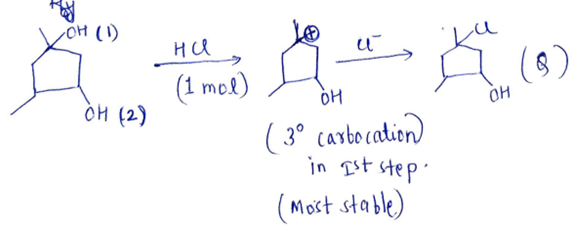 OH (1)
HCl
(1 mol)
⊕
Cl⁻
Cl
(Q)
OH (2)
OH
OH
(3° carbocation)
in Ist step.
(Most stable)